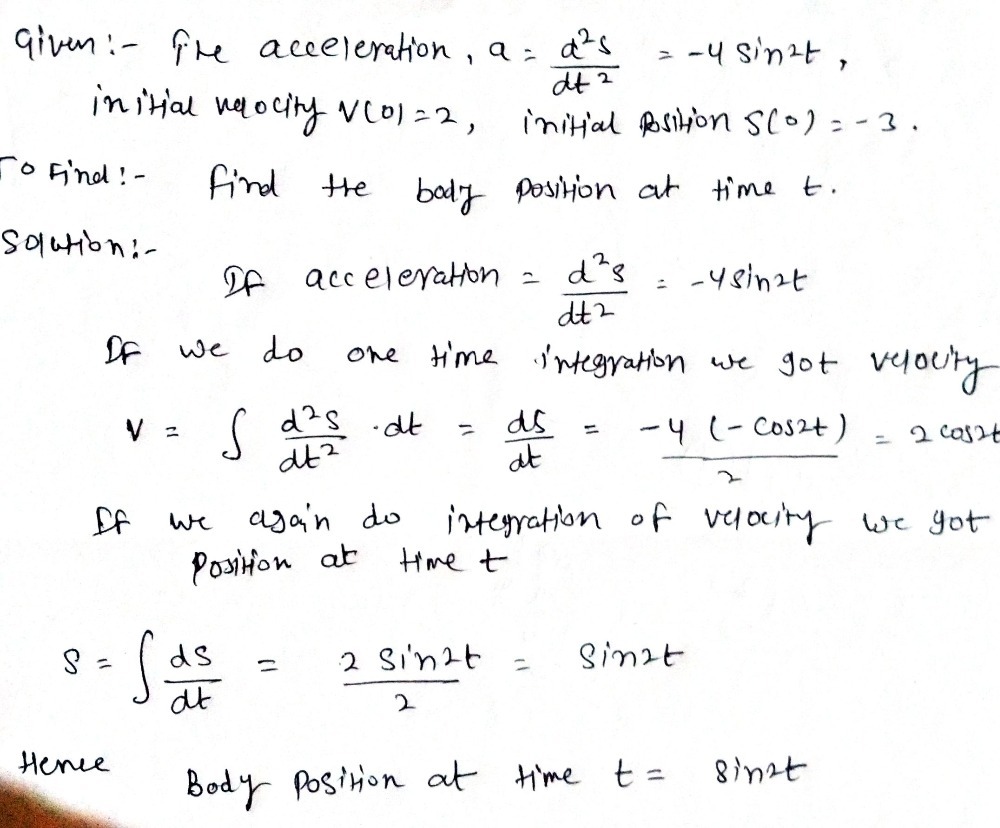 Given :- The acceleration, a = d²s/dt² = -4 sin2t,
initial velocity V(0) = 2, initial position S(0) = -3.
To Find :- find the body position at time t.
Solution :-
If acceleration = d²s/dt² = -4sin2t
If we do one time integration we got velocity
V = ∫ d²s/dt² · dt = ds/dt = -4 (-cos2t)/2 = 2 cos2t
If we again do integration of velocity we got
position at time t
S = ∫ ds/dt = 2 sin2t/2 = sin2t
Hence Body position at time t = sin2t